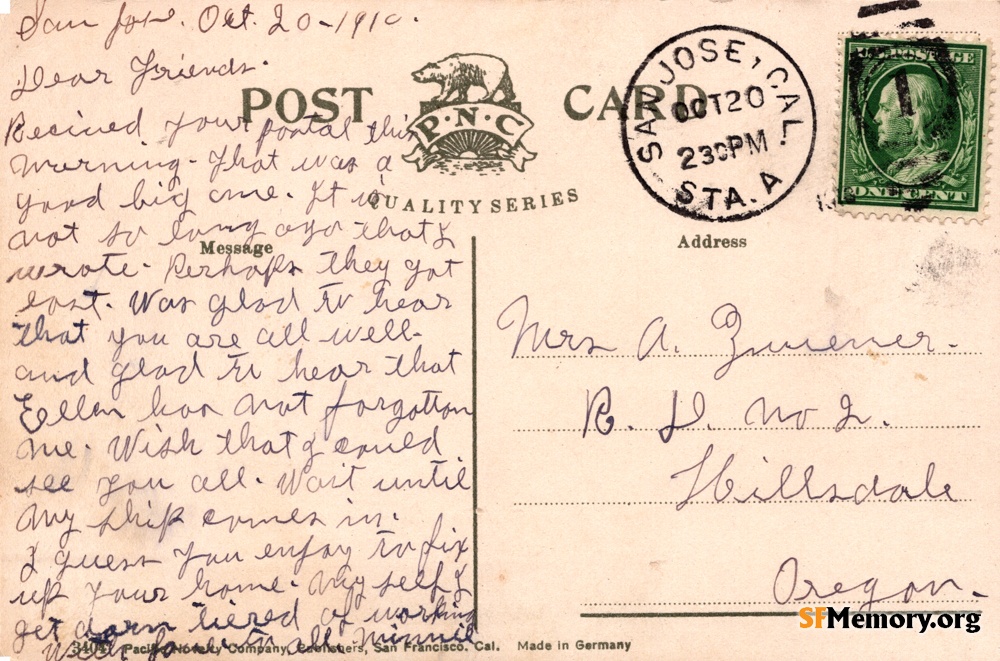 San Jose. Oct. 20-1910.
Dear Friends.
Recived your postal this
morning. That was a
good big one. It is
not so long ago that I
wrote. Perhaps they got
lost. Was glad to hear
that you are all well.
and glad to hear that
Ellen has not forgotton
me. Wish that I could
see you all. Wait until
my ship comes in.
I guess you enjoy to fix
up your home. My self I
get darn tiered of working
With love to all Minnie
POST CARD
P.N.C
QUALITY SERIES
Message
Address
SAN JOSE, CAL.
OCT 20
230PM
STA. A
U.S. POSTAGE
1
ONE CENT
Mrs A. Zwiener.
R. D. No 2.
Hillsdale
Oregon.
Pacific Novelty Company, Publishers, San Francisco. Cal. Made in Germany
SFMemory.org